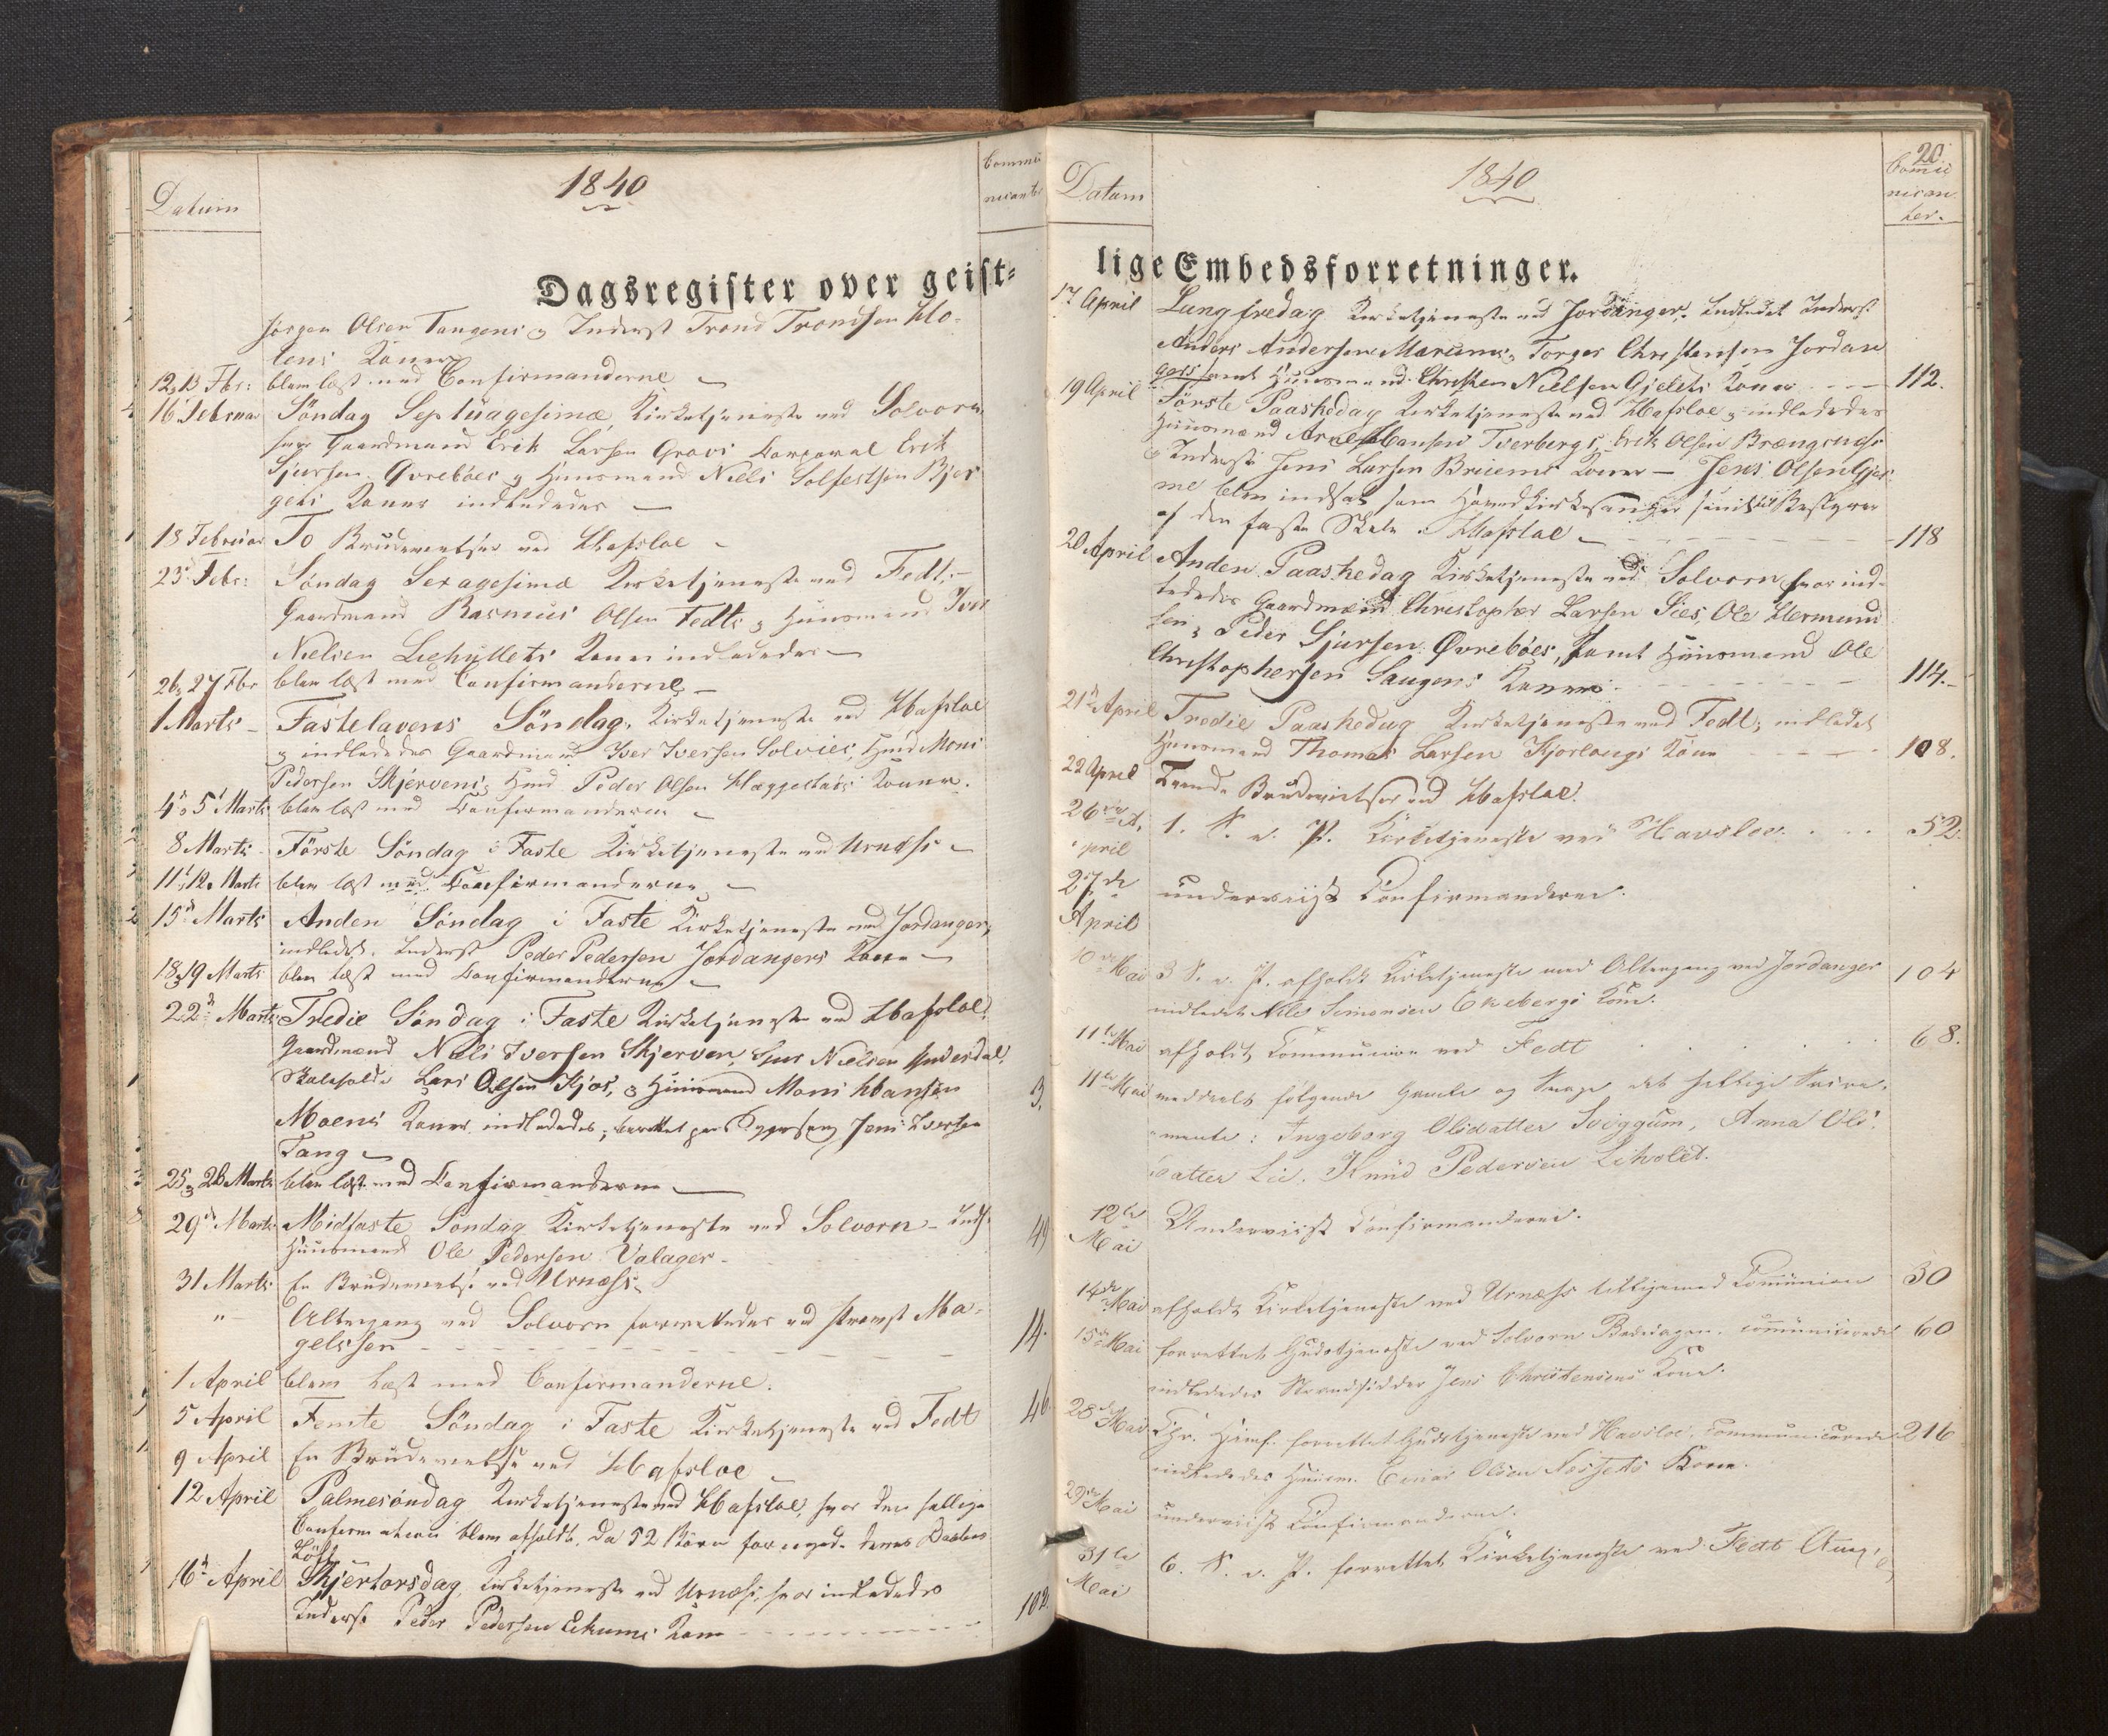 Datum
1840
Commu
nicanter
Dagsregister over geist=
Jørgen Olsen Tangens & Inderst Trond Trondsen Klo-
tens Koner
12&13 Fbr: blev læst med Confirmanderne –
16 Februar Söndag Septuagesimæ, Kirketjeneste ved Solvorn
hvor Gaardmand Erik Larsen Gravi Corporal Erik
Sjursen Qvrebøes & Huusmand Niels Solfestsen Bjer
gets Koner indlededes –
18 Februar To Brudevielser ved Hafsloe –
23 Febr: Söndag Sexagesimæ Kirketjeneste ved Fedt, –
Gaardmand Rasmus Olsen Fedts & Huusmand Iver
Nielsen Liehullets Koner indledede –
26&27 Fbr blev læst med Confirmanderne –
1 Marts – Fastelavens Söndag, Kirketjeneste ved Hafsloe
& indlededes Gaardmand Iver Iversen Solvies, Hmd Mons
Pedersen Skjervens, Hmd Peder Olsen Hæggestads Koner.
4&5 Marts blev læst med Confirmanderne –
8 Marts Förste Söndag i Faste Kirketjeneste ved Urnæss –
11&12 Marts blev læst med Confirmanderne –
15 Marts Anden Söndag i Faste Kirketjeneste ved Jordanger,
indledet. Inderst Peder Pedersen Jordangers Kone –
18&19 Marts blev læst med Confirmanderne –
22 Marts Tredie Söndag i Faste Kirketjeneste ved Hafsloe
Gaardmænd Niels Iversen Skjerven, Sjur Nielsen
Skoleholder Lars Olsen Kjos, & Huusmand Mons Hansen 3.
Moens Koner indlededes, Jens Iversen
Tang –
25&26 Marts blev læst med Confirmanderne –
29 Marts Midfaste Söndag Kirketjeneste ved Solvorn – Indl. 49
Huusmand Ole Pedersen Valager –
31 Marts En Brudevielse ved Urnæss,
" – Altergang ved Solvorn forrettedes ved Provst Ma-
gelssen – – – 14.
1 April blev læst med Confirmanderne.
5 April Femte Söndag i Faste Kirketjeneste ved Fedt 46
9 April En Brudevielse ved Hafsloe –
12 April Palmesöndag Kirketjeneste ved Hafsloe, hvor den hellige
Confirmation blev afholdt, da 52 Börn fornyede deres Daabs
Löfte
16 April Skjertorsdag, Kirketjeneste ved Urnæss, hvor indlededes
Inderst Peder Pedersen Ekums Kone – – – 102.
Datum
1840
20
Comu
nican
ter.
lige Embedsforretninger.
17 April Langfredag Kirketjeneste ved Jordanger. Indledet Inderst
Anders Andersen Marums, Torger Christensen Jordan
gers samt Huusmand Christen Nielsen Gjelets Koner – – 112.
19 April Förste Paaskedag Kirketjeneste ved Hafsloe & indlededes
Huusmænd Arne Hansen Tverbergs, Erik Olsen Brængsnæss
& Inderst Jens Larsen Bruems Koner – Jens Olsen Gjer
me blev indsat som Hovedkirkesanger samt til Bestyrer
af den faste Skole i Hafsloe – – – 118
20 April Anden Paaskedag Kirketjeneste ved Solvorn hvor ind-
lededes Gaardmænd Christopher Larsen Sies, Ole Hermund
sen, Peder Sjursen Øvrebøes, samt Huusmand Ole
Christophersen Haugens Koner – – – 114.–
21 April Tredie Paaskedag Kirketjeneste ved Fedt, indledet
Huusmand Thomas Larsen Kjorlaugs Kone – – – 108.
22 April Tvende Brudevielser ved Hafsloe.
26de A, 1. S. e. P. Kirketjeneste ved Havsloe. . . . 52.
pril
27de underviist Confirmanderne.
April
10de Mai 3 S. e. P. afholdt Kirketjeneste med Altergang ved Jordanger 104
indledet Nils Simonsen Ekebergs Kone.
11te Mai afholdt Communion ved Fedt . . . . 68.
11te Mai meddeelt følgende Gamle og Svage det hellige Sacra,
mente: Ingeborg Olsdatter Sviggum, Anna Ols
datter Lie, Knud Pedersen Liholet.
12te Underviist Confirmanderne.
Mai
14de Mai afholdt Kirketjeneste ved Urnæss tilligemed Communion 30
15de Mai forrettet Gudstjeneste ved Solvorn Bededagen. communicerede 60
indlededes Strandsidder Jens Christensens Kone.
28de Mai Chr. Himf. forrettet Gudstjeneste ved Havsloe, Communicerede 216
indlededes Huusm. Einar Olsen Næssets Kone.
29de Mai underviist Confirmanderne.
31te 6. S. e. P. forrettet Kirketjeneste ved Fedt
Mai